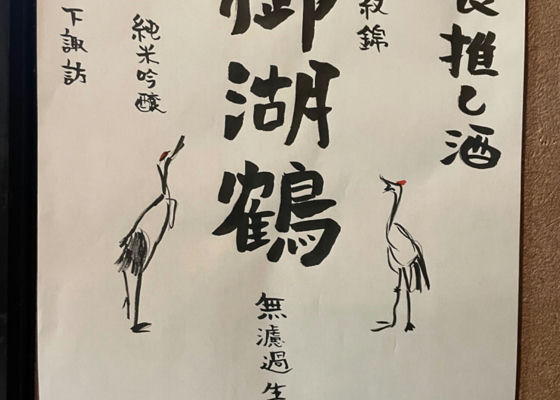 推し酒
紋錦
御湖鶴
無濾過生
純米吟醸
下諏訪